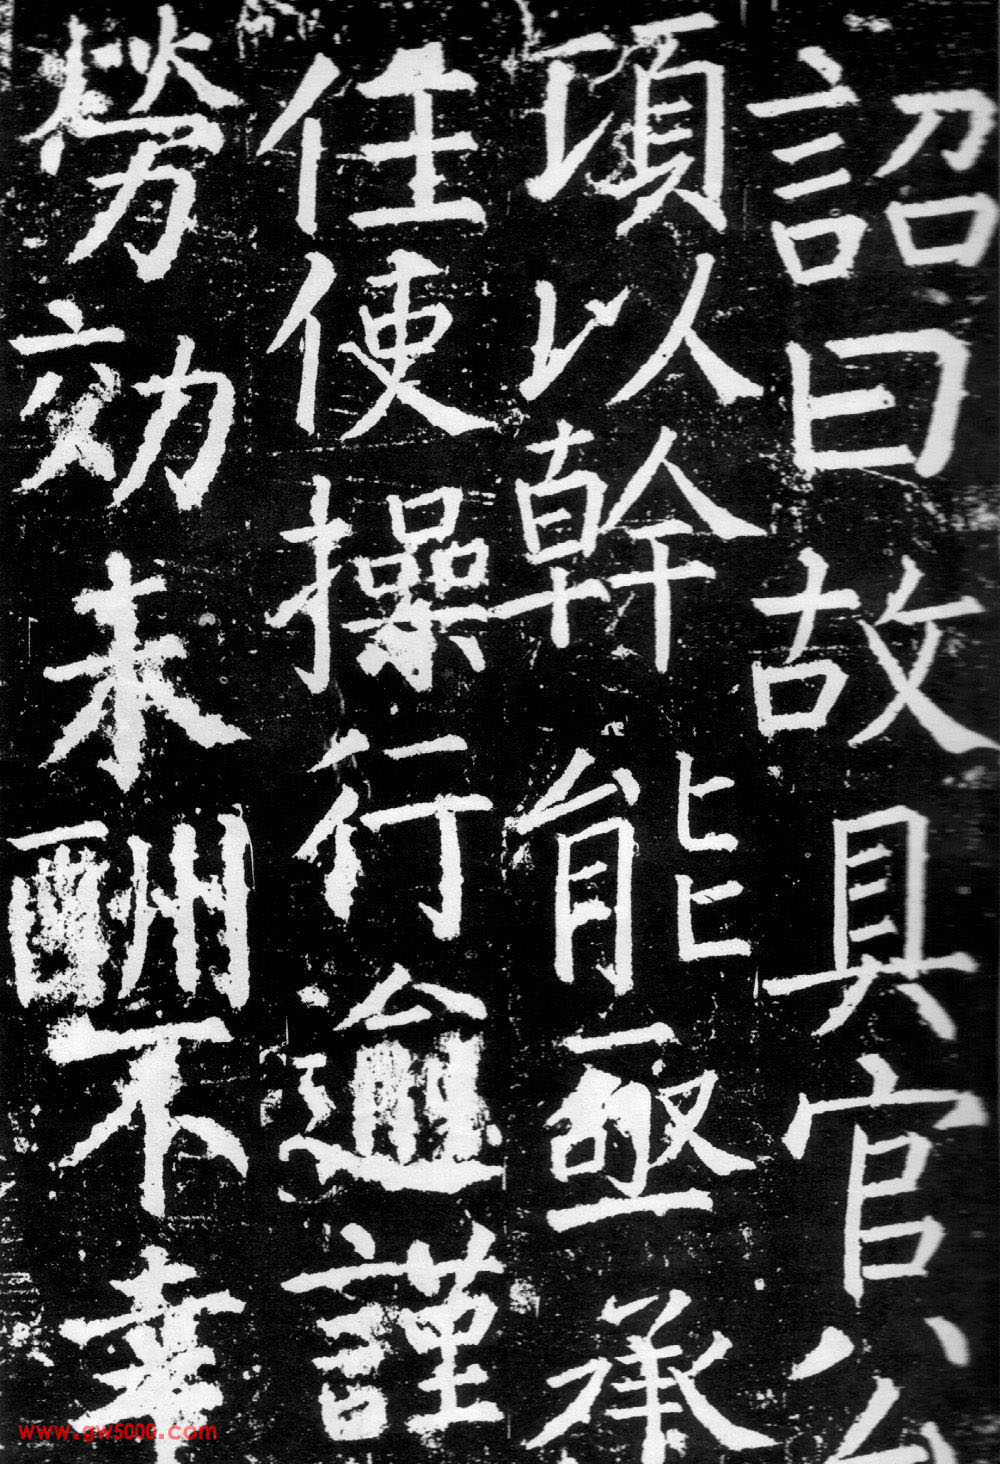 詔曰故具官公
頃以幹能亟承
任使操行逾謹
勞効未酬不幸
www.gw5000.com